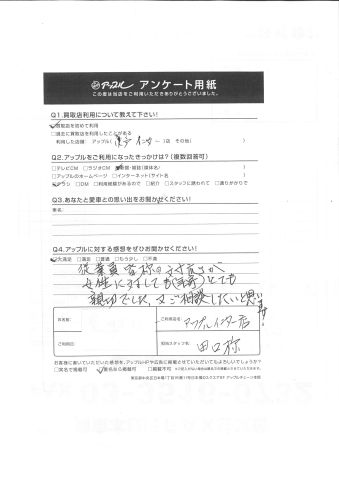 アップル アンケート用紙
この度は当店をご利用いただきありがとうございました。
Q1.買取店利用について教えて下さい!
☑買取店を初めて利用
□過去に買取店を利用したことがある
利用した店舗: アップル( 店 その他: )
Q2.アップルをご利用になったきっかけは?(複数回答可)
□テレビCM □ラジオCM ☑新聞・雑誌(媒体名: )
□アップルのホームページ □インターネット(サイト名 )
☑チラシ □DM □利用経験があるので □紹介 □スタッフに誘われて □通りがかりで
Q3.あなたと愛車との思い出をお聞かせください!
車名:
Q4.アップルに対する感想をぜひお聞かせください!
☑大満足 □満足 □普通 □もう少し □不満
従業員
女性に対しても とても
親切でした。又ご相談したいと思います。
お名前:
ご利用店名:
アップル インター店
ご利用日:
担当スタッフ名:
田口
お客様に書いていただいた感想を、アップルHPや広告に掲載させていただいてもよろしいでしょうか?
□実名で掲載可 ☑匿名なら掲載可 □掲載不可